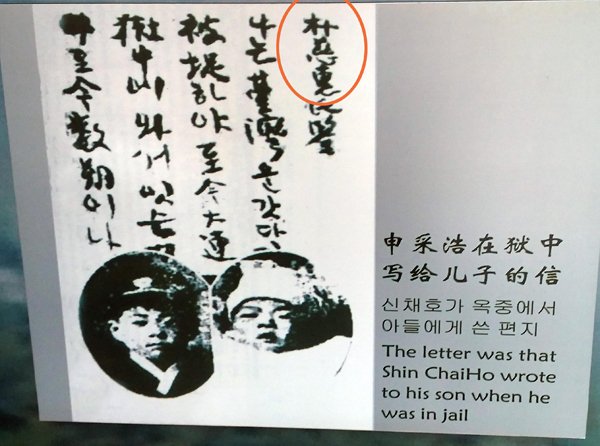 朴慈惠
나는 臺灣을 갓다
被捉하야 至今大連
와서 잇는
至今數朔이나
申采浩在狱中
写给儿子的信
신채호가 옥중에서
아들에게 쓴 편지
The letter was that
Shin ChaiHo wrote
to his son when he
was in jail